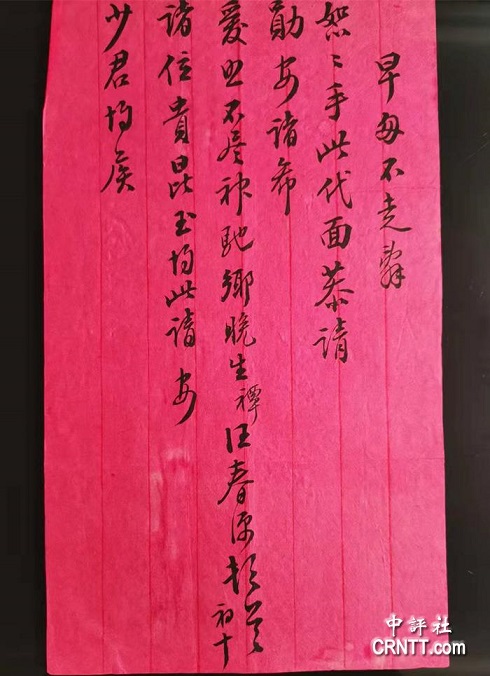 早每不走辞
恕〻手此代面恭請
勛安諸希
愛照不盡神馳鄉晚生禫汪春源頓首
初十
諸位貴昆玉均此請安
少君均候
中評社
CRNTT.com